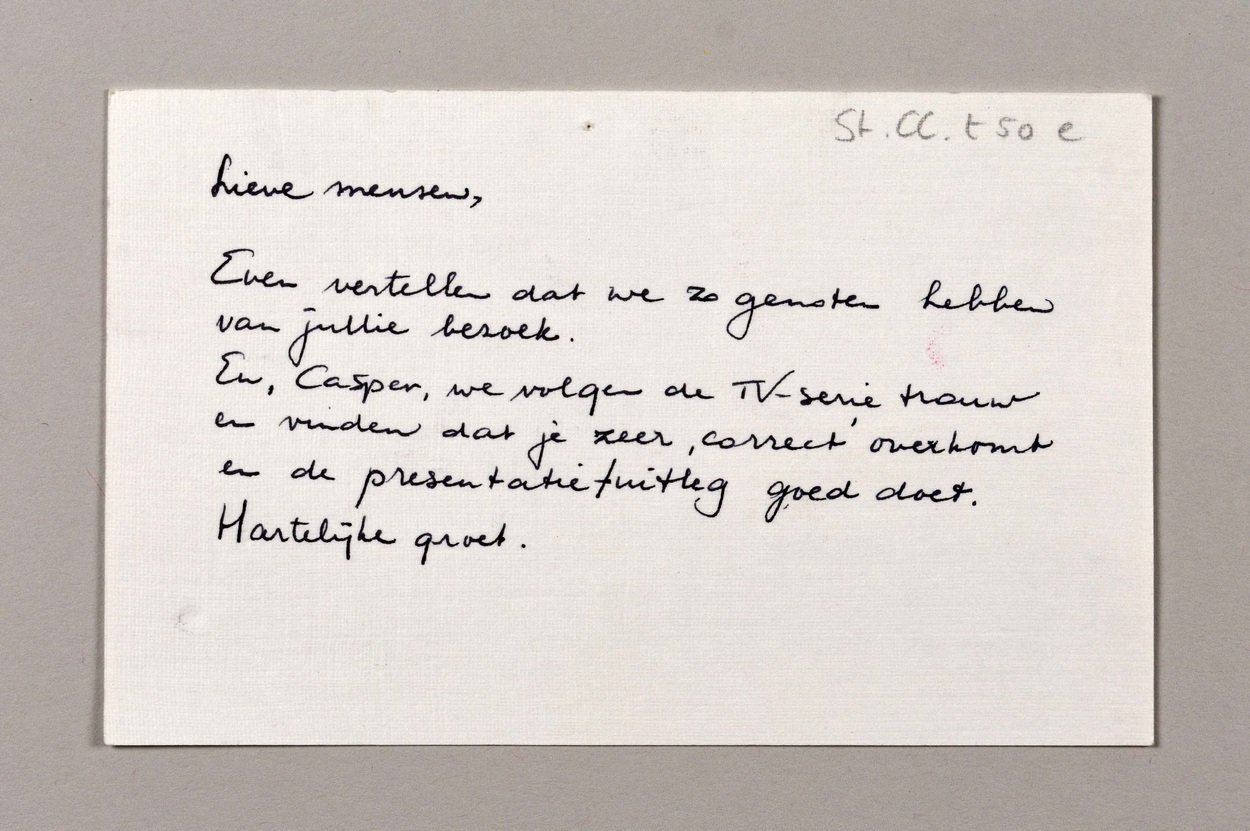 St.CC.t 50 e
Lieve mensen,
Even vertellen dat we zo genoten hebben
van jullie bezoek.
En, Casper, we volgen de TV-serie trouw
en vinden dat je zeer ‚correct' overkomt
en de presentatie/uitleg goed doet.
Hartelijke groet.